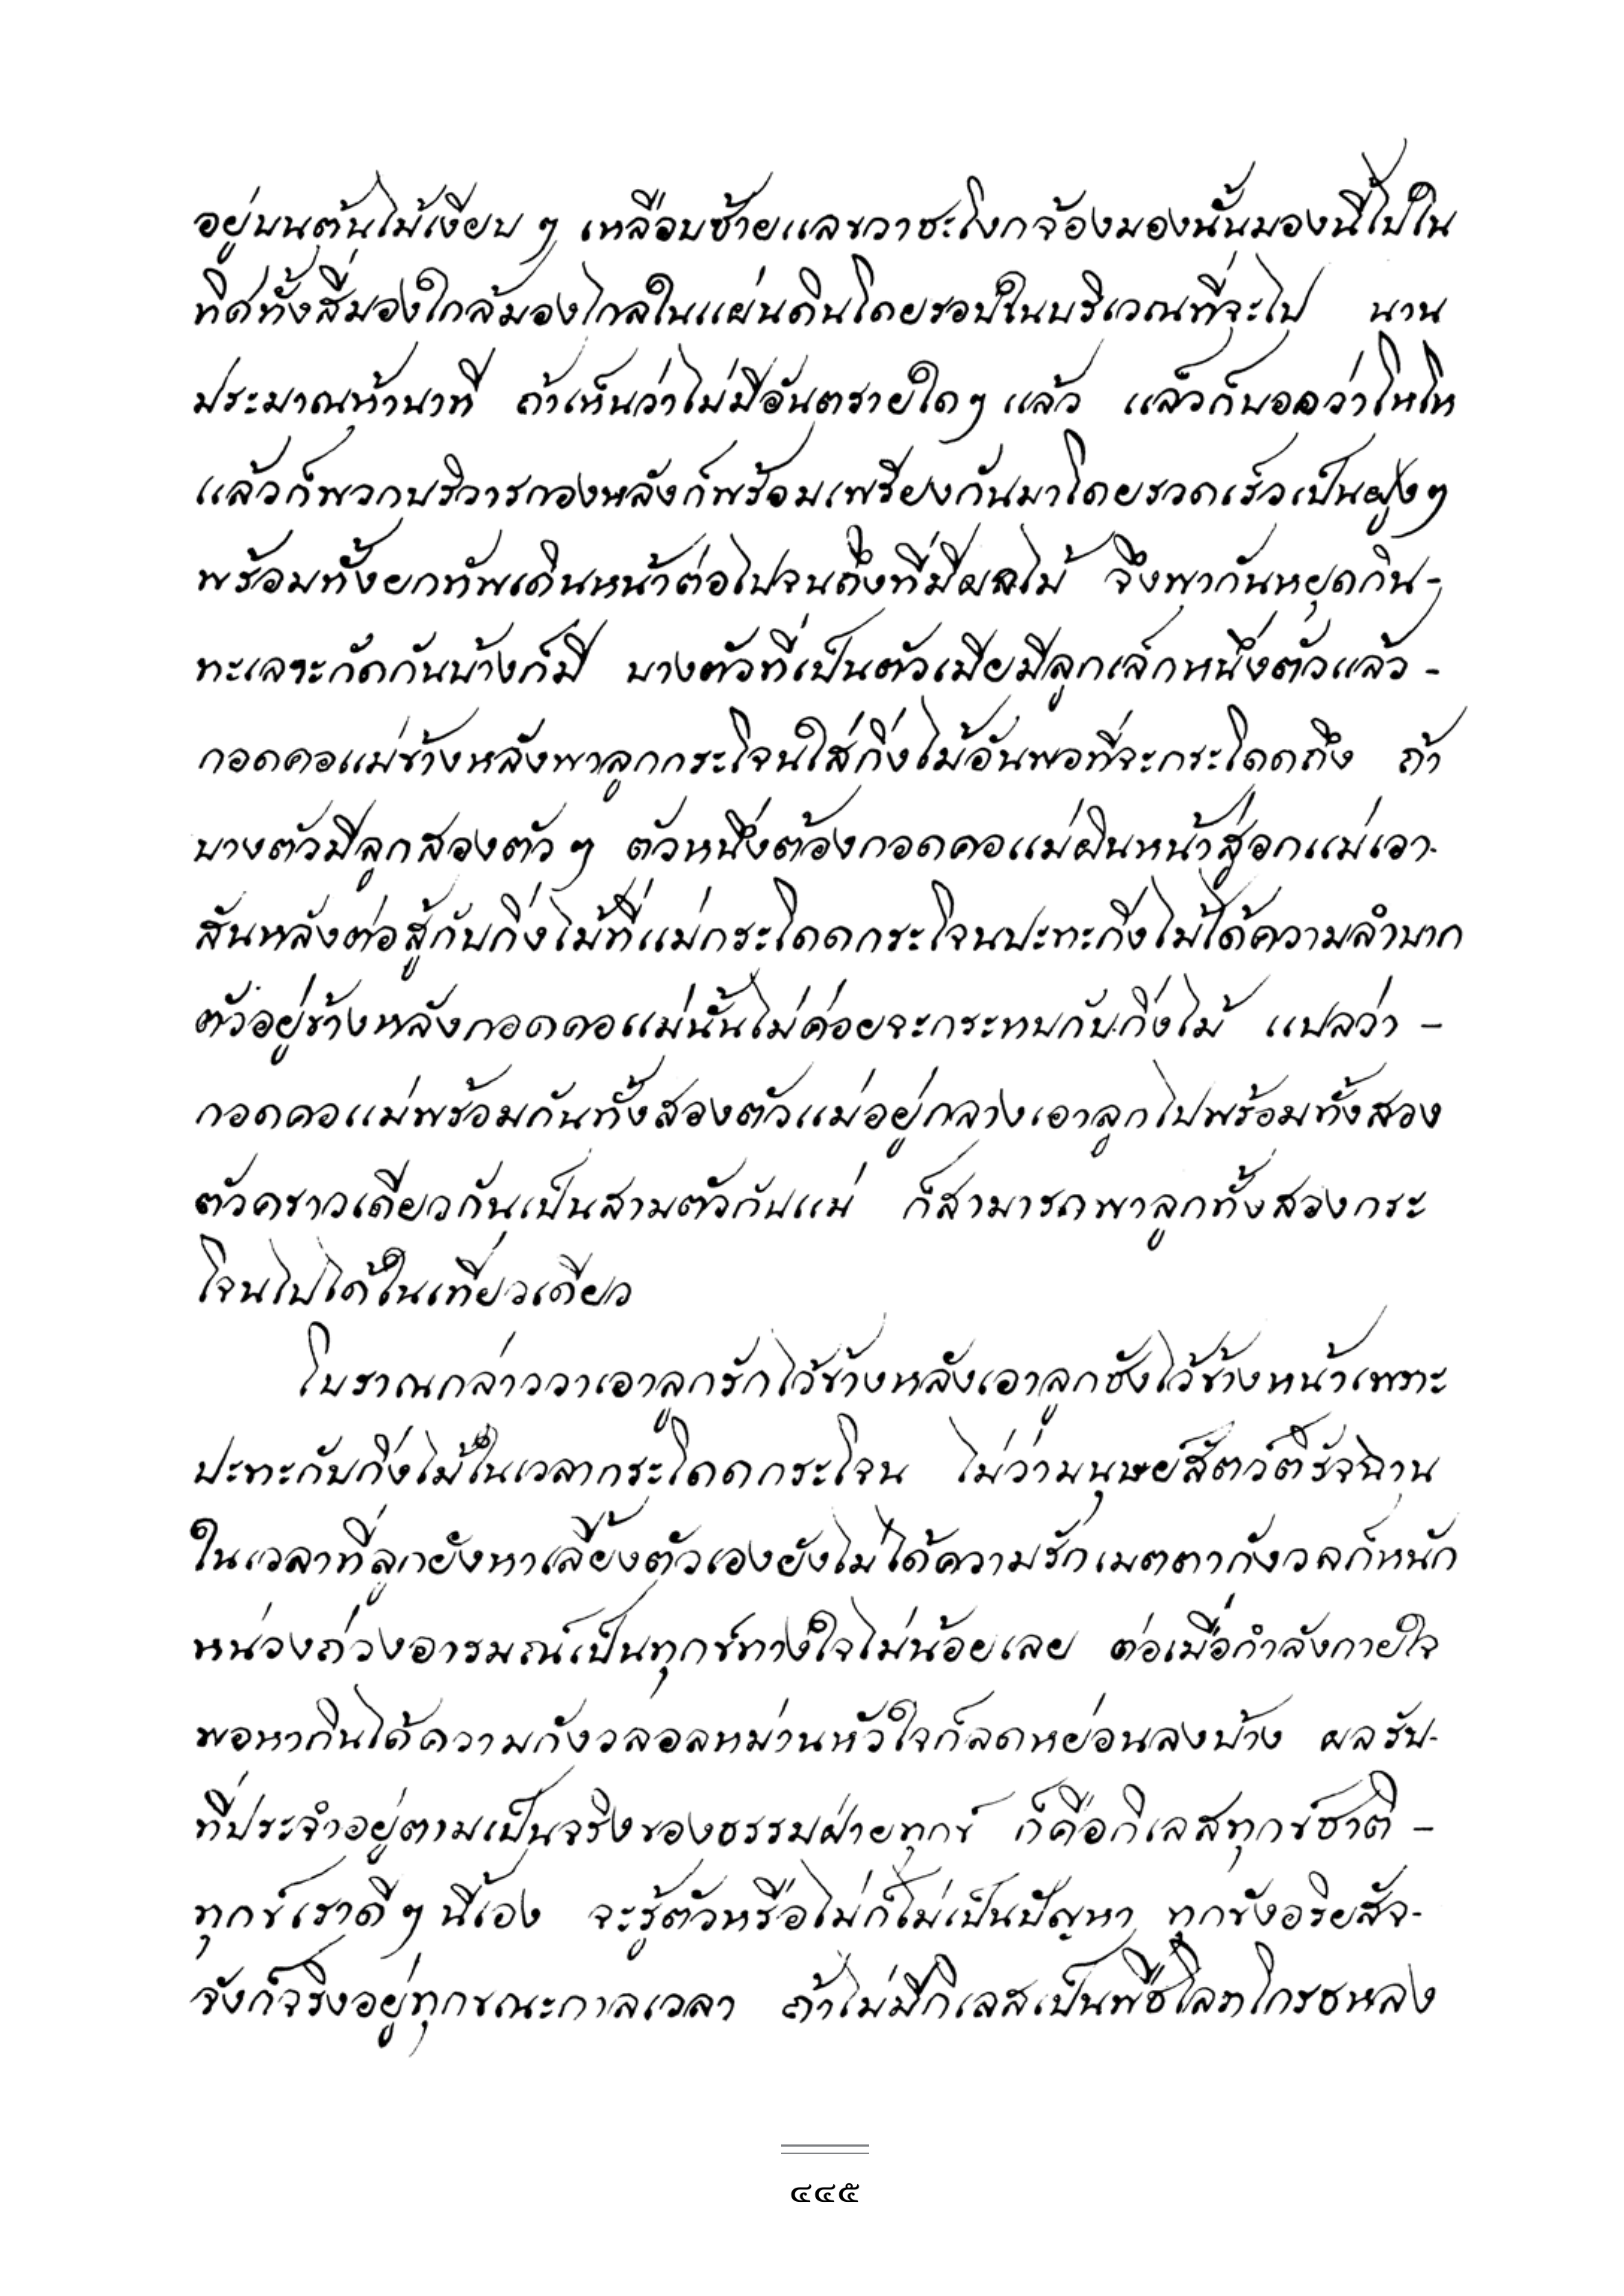 อยู่บนต้นไม้เงียบ ๆ เหลือบซ้ายแลขวาชะโงกจ้องมองนั้นมองนี้ไปใน
ทิศทั้งสี่มองใกล้มองไกลในแผ่นดินโดยรอบในบริเวณที่จะไป นาน
ประมาณห้านาที ถ้าเห็นว่าไม่มีอันตรายใดๆ แล้ว แล้วก็บอกว่าโหโห
แล้วก็พวกบริวารกองหลังก็พร้อมเพรียงกันมาโดยรวดเร็วเป็นฝูงๆ
พร้อมทั้งยกทัพเดินหน้าต่อไปจนถึงที่มีผลไม้ จึงพากันหยุดกิน-
ทะเลาะกัดกันบ้างก็มี บางตัวที่เป็นตัวเมียมีลูกเล็กหนึ่งตัวแล้ว -
กอดคอแม่ข้างหลังพาลูกกระโจนใส่กิ่งไม้อันพอที่จะกระโดดถึง ถ้า
บางตัวมีลูกสองตัว ๆ ตัวหนึ่งต้องกอดคอแม่ผินหน้าสู่อกแม่เอา-
สันหลังต่อสู้กับกิ่งไม้ที่แม่กระโดดกระโจนปะทะกิ่งไม้ได้ความลำบาก
ตัวอยู่ข้างหลังกอดคอแม่นั้นไม่ค่อยจะกระทบกับกิ่งไม้ แปลว่า -
กอดคอแม่พร้อมกันทั้งสองตัวแม่อยู่กลางเอาลูกไปพร้อมทั้งสอง
ตัวคราวเดียวกันเป็นสามตัวกับแม่ ก็สามารถพาลูกทั้งสองกระ
โจนไปได้ในเที่ยวเดียว
โบราณกล่าวว่าเอาลูกรักไว้ข้างหลังเอาลูกชังไว้ข้างหน้าเพราะ
ปะทะกับกิ่งไม้ในเวลากระโดดกระโจน ไม่ว่ามนุษย์สัตว์ติรัจฉาน
ในเวลาที่ลูกยังหาเลี้ยงตัวเองยังไม่ได้ความรักเมตตากังวลก็หนัก
หน่วงถ่วงอารมณ์เป็นทุกข์ทางใจไม่น้อยเลย ต่อเมื่อกำลังกายใจ
พอหากินได้ความกังวลอลหม่านหัวใจก็ลดหย่อนลงบ้าง ผลรับ-
ที่ประจำอยู่ตามเป็นจริงของธรรมฝ่ายทุกข์ ก็คือกิเลสทุกข์ชาติ -
ทุกข์เราดีๆ นี้เอง จะรู้ตัวหรือไม่ก็ไม่เป็นปัญหา ทุกขังอริยสัจ-
จังก็จริงอยู่ทุกขณะกาลเวลา ถ้าไม่มีกิเลสเป็นพืชโลภโกรธหลง
๔๔๕